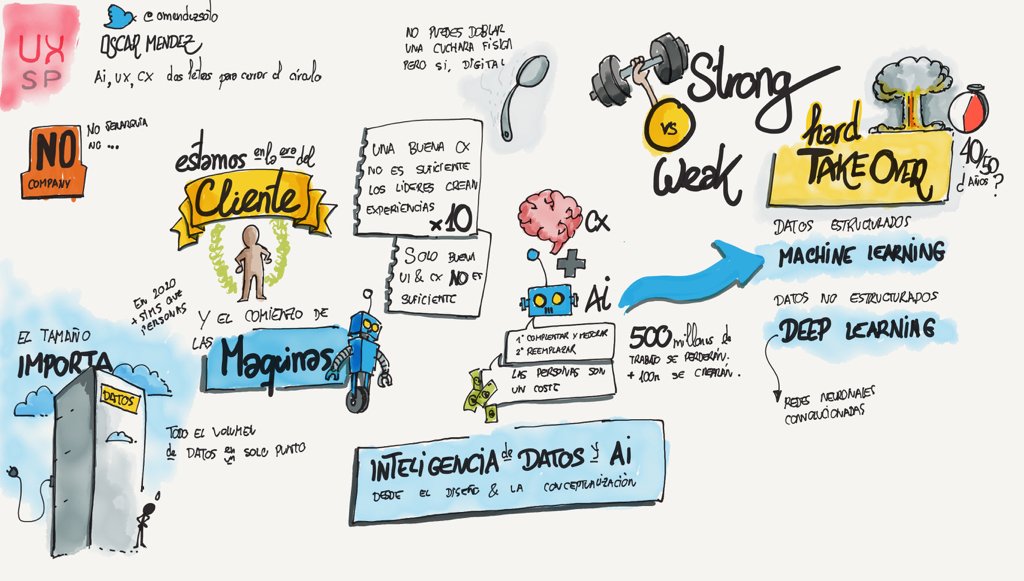 UX
SP
@omendezsoto
OSCAR MENDEZ
Ai, UX, CX dos letras para cerrar el círculo
NO
COMPANY
NO JERARQUÍA
NO ...
estamos en la era del
Cliente
EN 2020
+ SIMS QUE
PERSONAS
Y EL COMIENZO DE
LAS
Maquinas
EL TAMAÑO
IMPORTA
DATOS
TODO EL VOLUMEN
de DATOS en un SOLO PUNTO
NO PUEDES DOBLAR
UNA CUCHARA FÍSICA
PERO SI, DIGITAL
UNA BUENA CX
NO ES SUFICIENTE
LOS LÍDERES CREAN
EXPERIENCIAS
x10
SOLO BUENA
UI & CX NO ES
SUFICIENTE
CX
+
Ai
1º COMPLEMENTAR Y MEJORAR
2º REEMPLAZAR
LAS PERSONAS SON
UN COSTE
500 millones de
TRABAJO SE PERDERÁN.
+ 100m SE CREARÁN.
INTELIGENCIA de DATOS y Ai
DESDE EL DISEÑO & LA CONCEPTUALIZACIÓN
Strong
VS
Weak
hard
TAKE OVER
40/50
¿AÑOS?
DATOS ESTRUCTURADOS
MACHINE LEARNING
DATOS NO ESTRUCTURADOS
DEEP LEARNING
REDES NEURONALES
CONVOLUCIONADAS